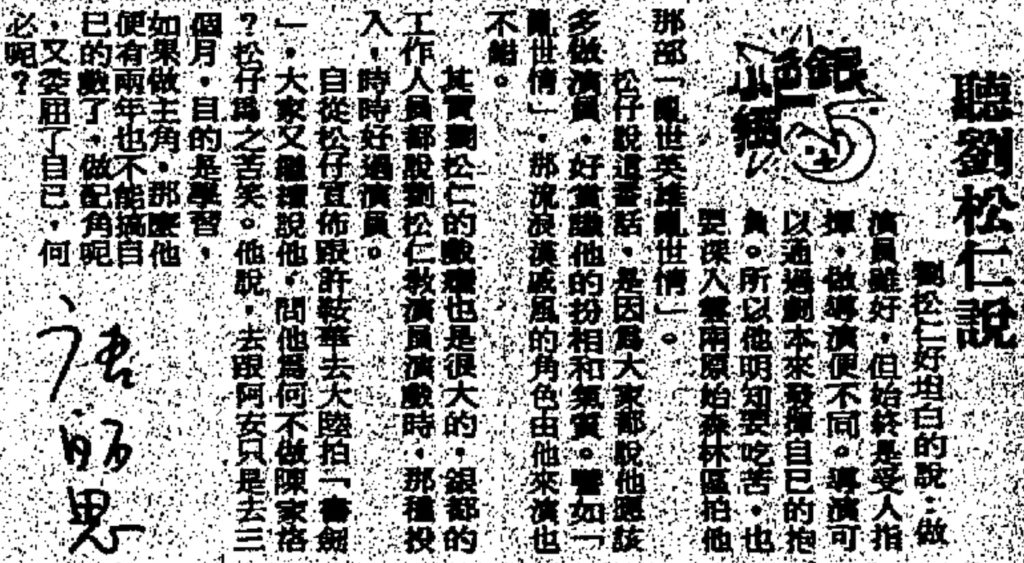 聽劉松仁說
銀色
劉松仁好坦白的說：做
演員雖好，但始終是受人指
揮，做導演便不同。導演可
以通過劇本來發揮自己的抱
負。所以他明知要吃苦，也
要深入雲南原始森林區拍他
那部「亂世英雄亂世情」。
松仔說這番話，是因爲大家都說他應該
多做演員，好賞識他的扮相和氣質。譬如「
亂世情」，那流浪漢戚風的角色由他來演也
不錯。
其實劉松仁的戲癮也是很大的，銀都的
工作人員都說劉松仁敎演員演戲時，那種投
入，時時好過演員。
自從松仔宣佈跟許鞍華去大陸拍「書劍
」，大家又繼續說他，問他爲何不做陳家洛
？松仔爲之苦笑。他說，去跟阿安只是去三
個月，目的是學習，
如果做主角，那麼他
便有兩年也不能搞自
己的戲了，做配角呢
，又委屈了自己，何
必呢？